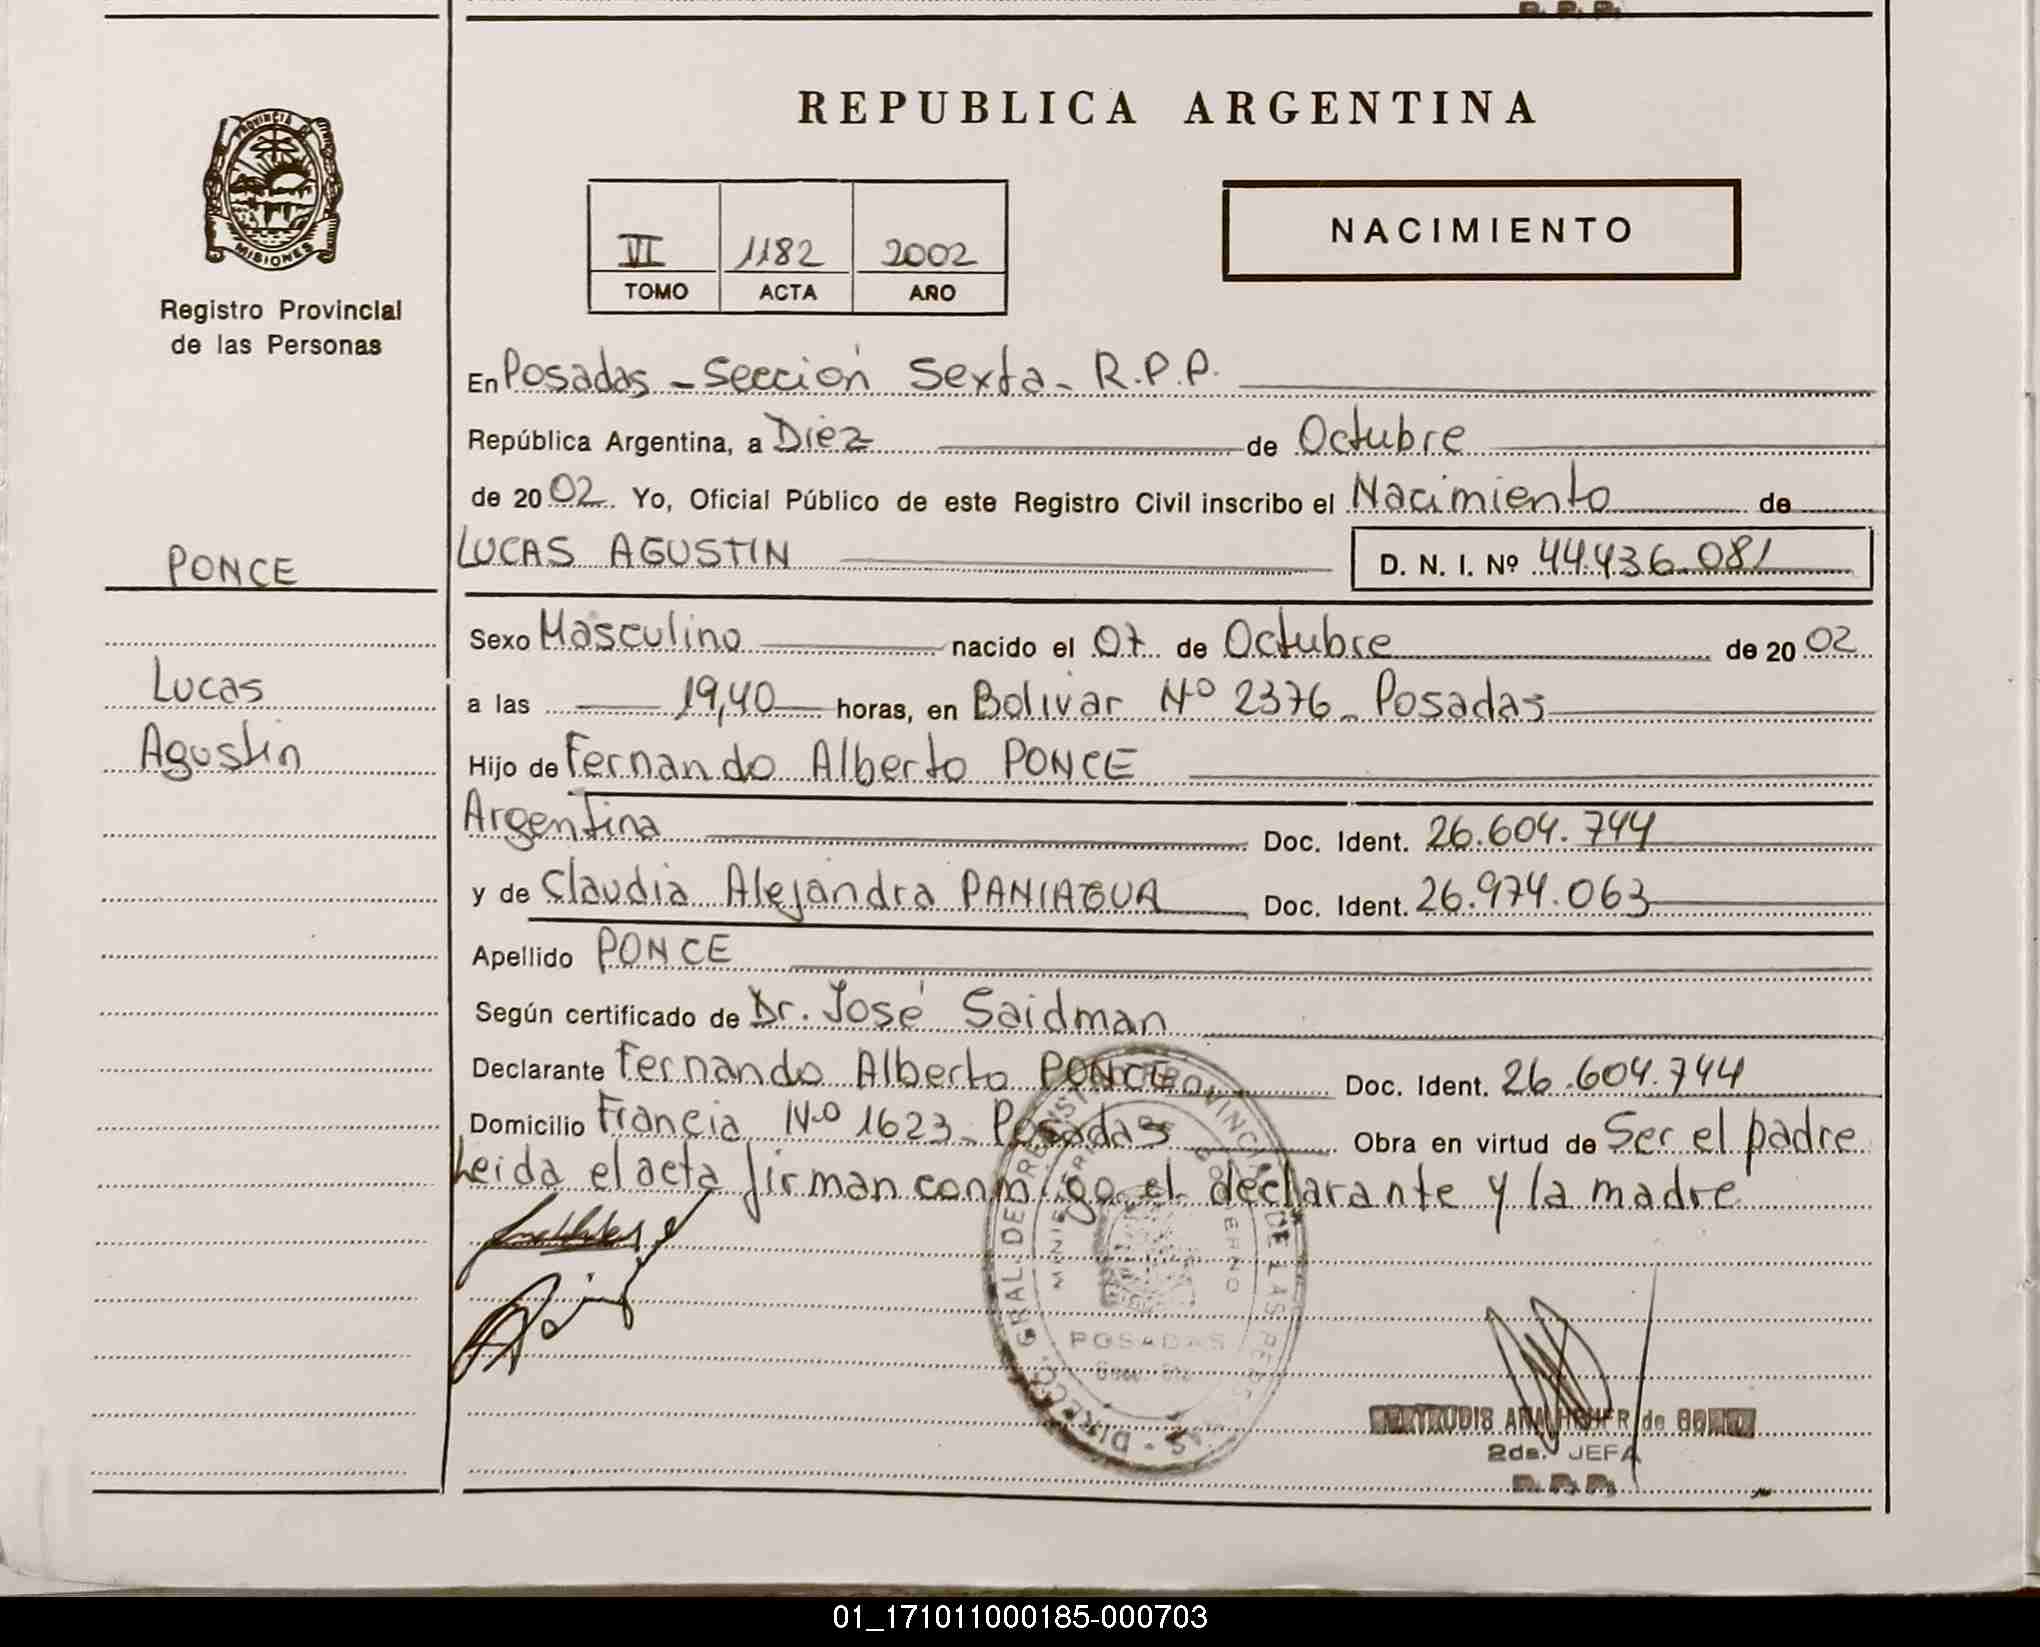 R. P. P.
PROVINCIA DE
MISIONES
Registro Provincial
de las Personas
PONCE
Lucas
Agustin
REPUBLICA ARGENTINA
VI 1182 2002
TOMO ACTA AÑO
NACIMIENTO
En Posadas - Sección Sexta - R.P.P.
República Argentina, a Diez de Octubre
de 2002 Yo, Oficial Público de este Registro Civil inscribo el Nacimiento de
LUCAS AGUSTIN D. N. I. Nº 44.436.081
Sexo Masculino nacido el 07 de Octubre de 2002
a las 19,40 horas, en Bolivar Nº 2376 - Posadas
Hijo de Fernando Alberto PONCE
Argentina Doc. Ident. 26.604.744
y de Claudia Alejandra PANIAGUA Doc. Ident. 26.974.063
Apellido PONCE
Según certificado de Dr. José Saidman
Declarante Fernando Alberto PONCE Doc. Ident. 26.604.744
Domicilio Francia Nº 1623 - Posadas Obra en virtud de Ser el padre
Leida el acta firman conmigo el declarante y la madre
DIRECC. GRAL. DE REGISTRO PROVINCIAL DE LAS PERSONAS
MINISTERIO DE GOBIERNO
POSADAS
de
2da. JEFA
R. P. P.
01_171011000185-000703